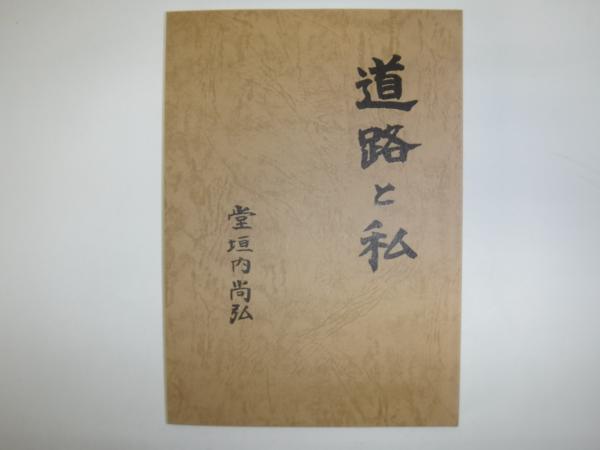 道路と私
堂垣内尚弘